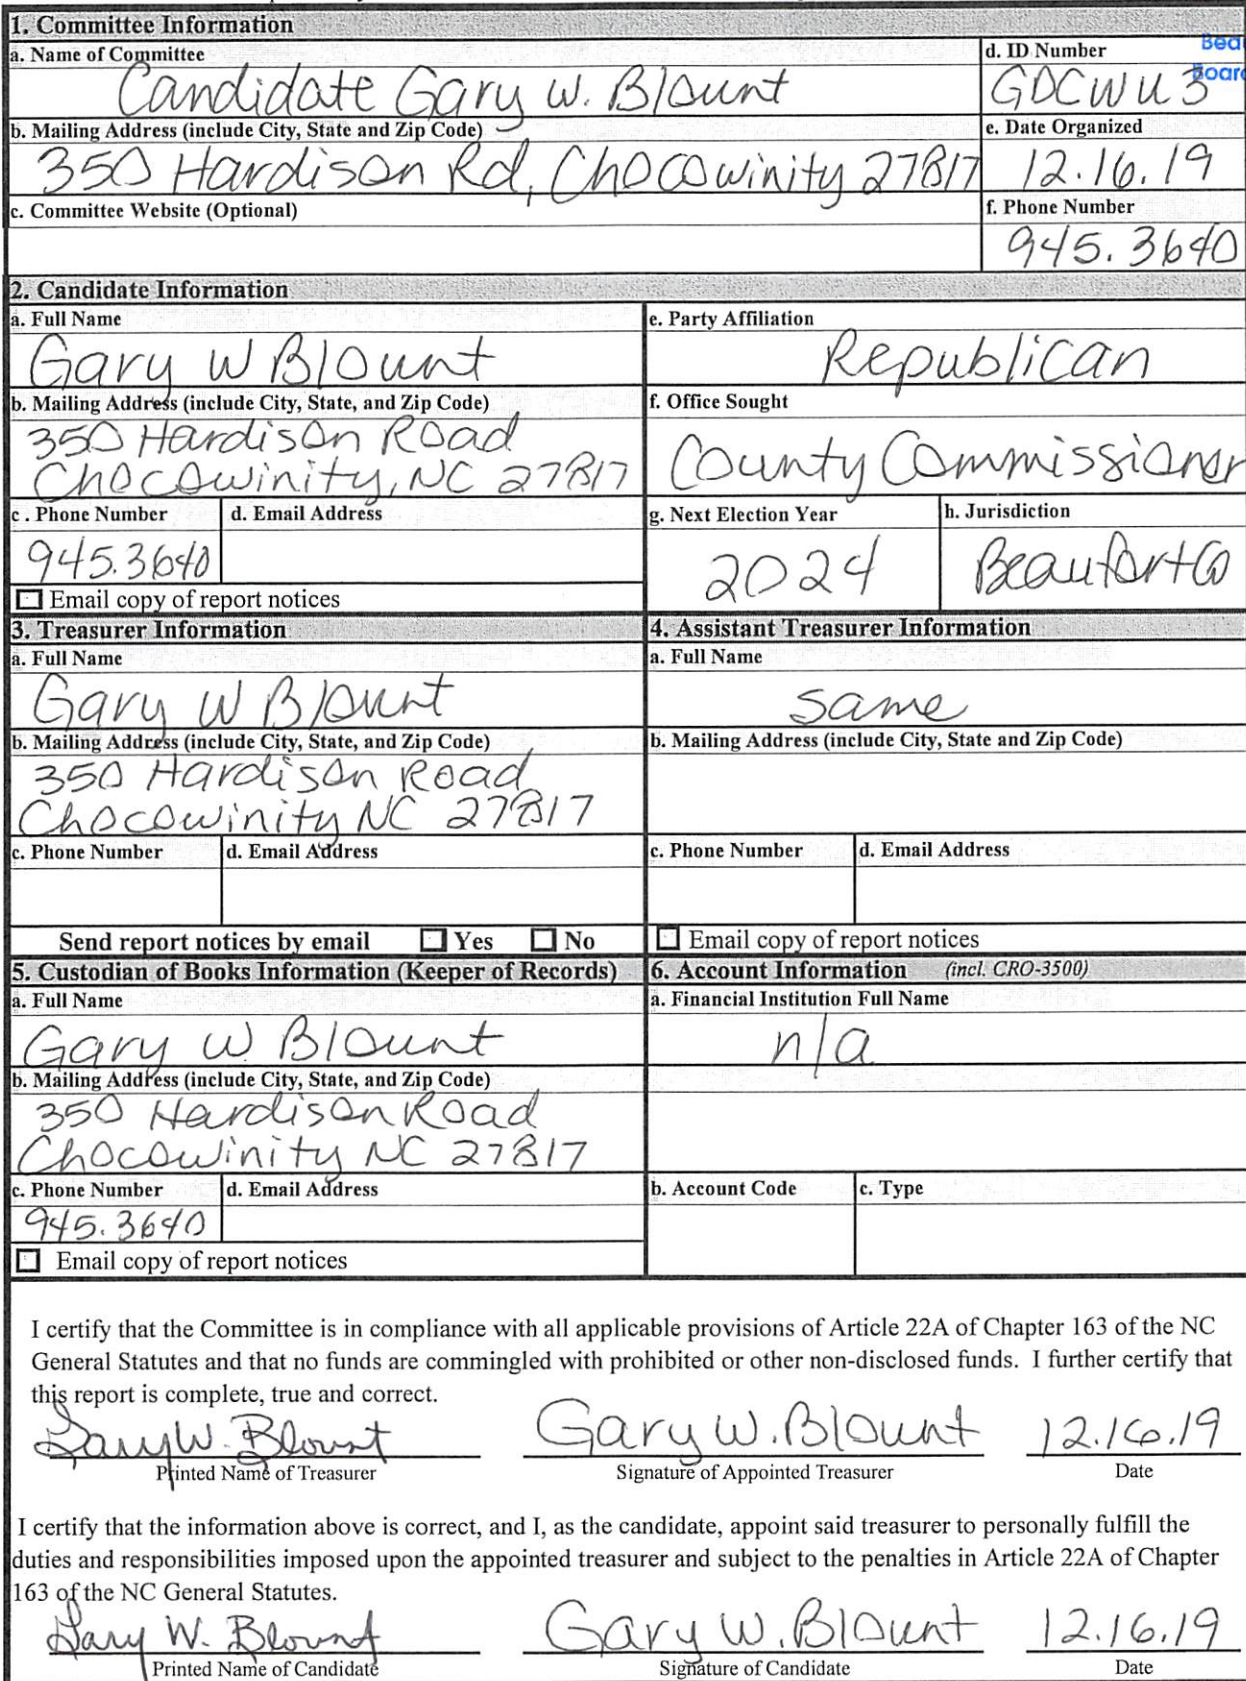 1. Committee Information
a. Name of Committee
Candidate Gary W. Blount
d. ID Number
GDCWU3
b. Mailing Address (include City, State and Zip Code)
350 Hardison Rd, Chocowinity 27817
e. Date Organized
12.16.19
c. Committee Website (Optional)
f. Phone Number
945.3640
2. Candidate Information
a. Full Name
Gary W Blount
e. Party Affiliation
Republican
b. Mailing Address (include City, State, and Zip Code)
350 Hardison Road
Chocowinity, NC 27817
f. Office Sought
County Commissioner
c . Phone Number
945.3640
d. Email Address
g. Next Election Year
2024
h. Jurisdiction
Beaufort Co
Email copy of report notices
3. Treasurer Information
a. Full Name
Gary W Blount
b. Mailing Address (include City, State, and Zip Code)
350 Hardison Road
Chocowinity NC 27817
c. Phone Number
d. Email Address
Send report notices by email Yes No
4. Assistant Treasurer Information
a. Full Name
same
b. Mailing Address (include City, State and Zip Code)
c. Phone Number
d. Email Address
Email copy of report notices
5. Custodian of Books Information (Keeper of Records)
a. Full Name
Gary W Blount
b. Mailing Address (include City, State, and Zip Code)
350 Hardison Road
Chocowinity NC 27817
c. Phone Number
945.3640
d. Email Address
Email copy of report notices
6. Account Information (incl. CRO-3500)
a. Financial Institution Full Name
n/a
b. Account Code
c. Type
I certify that the Committee is in compliance with all applicable provisions of Article 22A of Chapter 163 of the NC
General Statutes and that no funds are commingled with prohibited or other non-disclosed funds. I further certify that
this report is complete, true and correct.
Gary W. Blount Gary W. Blount 12.16.19
Printed Name of Treasurer Signature of Appointed Treasurer Date
I certify that the information above is correct, and I, as the candidate, appoint said treasurer to personally fulfill the
duties and responsibilities imposed upon the appointed treasurer and subject to the penalties in Article 22A of Chapter
163 of the NC General Statutes.
Gary W. Blount Gary W. Blount 12.16.19
Printed Name of Candidate Signature of Candidate Date